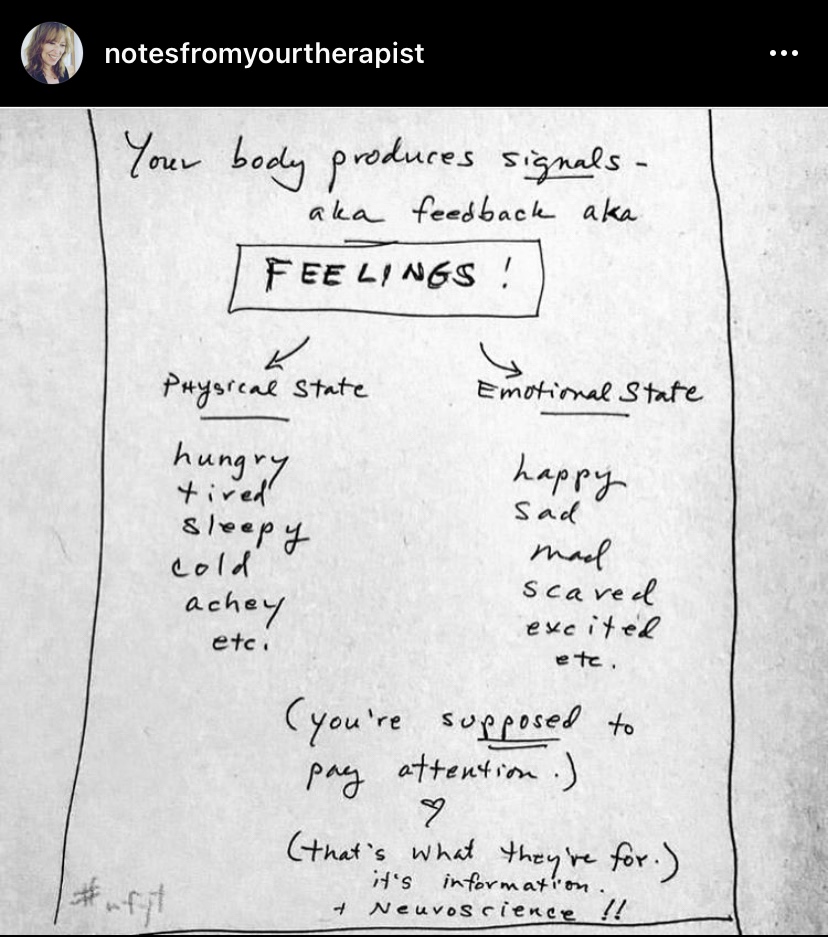 notesfromyourtherapist
Your body produces signals -
aka feedback aka
FEELINGS!
Physical State
Emotional State
hungry
tired
sleepy
cold
achey
etc.
happy
sad
mad
scared
excited
etc.
(you're supposed to
pay attention.)
(that's what they're for.)
it's information.
+ Neuroscience !!
#nfyt